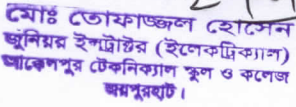 মোঃ তোফাজ্জল হোসেন
জুনিয়র ইন্সট্রাক্টর (ইলেকট্রিক্যাল)
আক্কেলপুর টেকনিক্যাল স্কুল ও কলেজ
জয়পুরহাট।